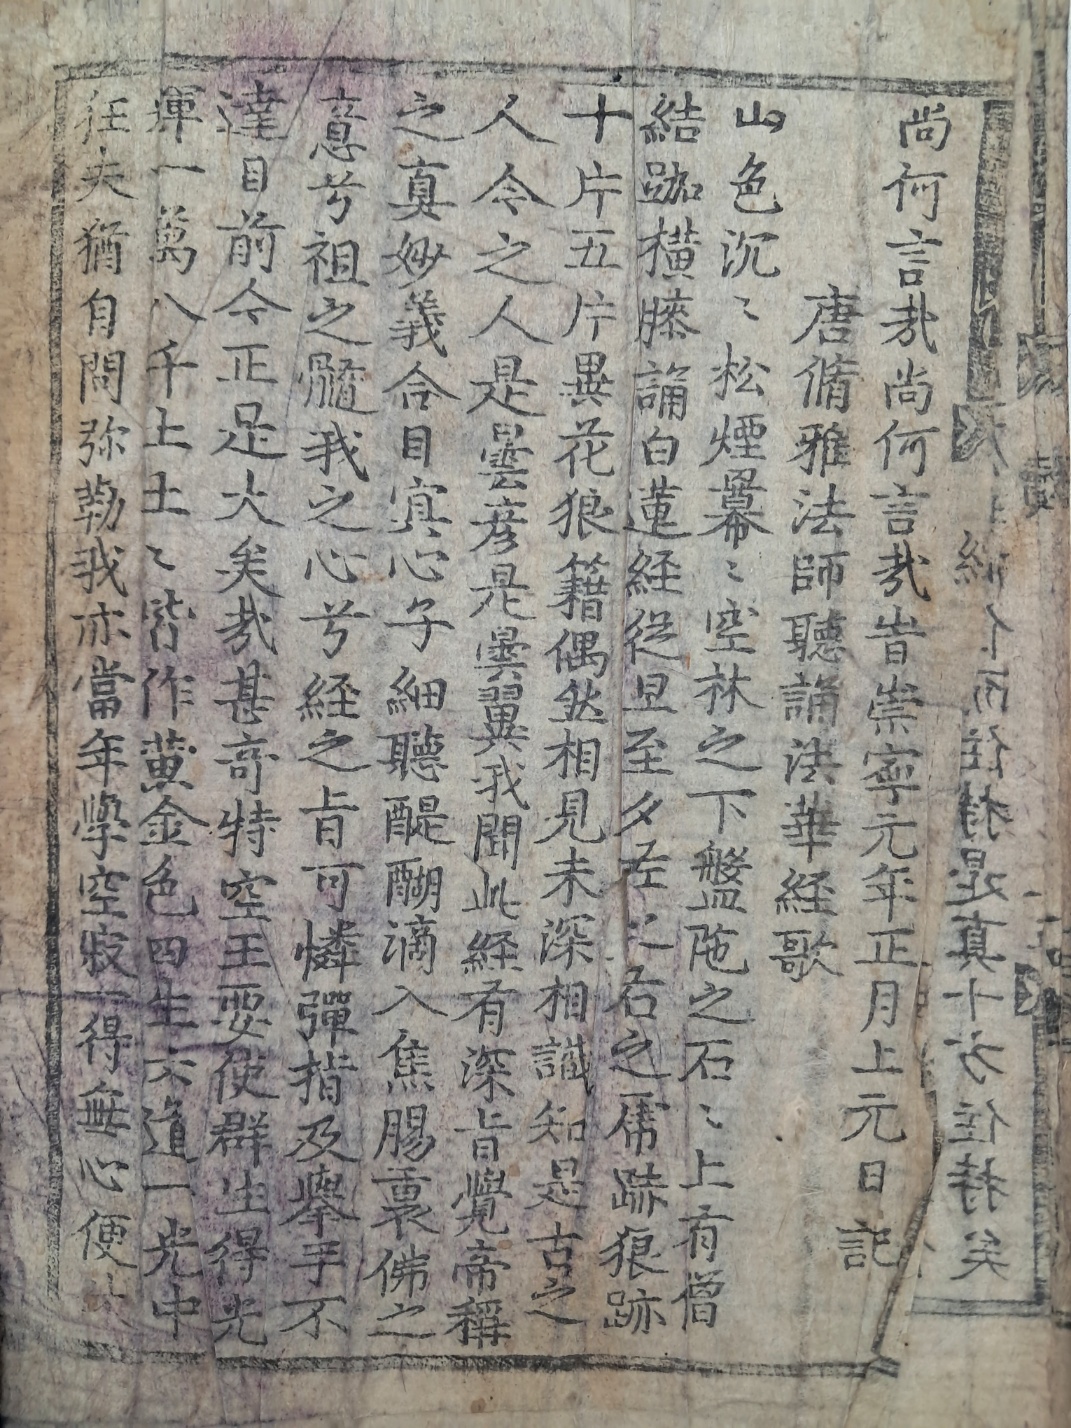 尚何言㢤尚何言㢤旹崇寧元年正月上元日記
唐脩雅法師聽誦法華経歌
山色沉〻松煙羃〻空林之下盤陁之石〻上有僧
結跏横䐚誦白蓮経従旦至夕左之右之虎跡狼跡
十片五片異花狼籍偶然相見未深相識知是古之
人今之人是曇彦是曇翼我聞此経有深旨覺帝稱
之真妙義合目冥心子細聽醍醐滴入焦腸裏佛之
意兮祖之髓我之心兮経之旨可憐彈指及擧手不
達目前今正是大矣㢤甚竒特空王要使群生得光
輝一萬八千土土〻皆作黄金色四生六道一光中
狂夫猶自問弥勒我亦當年學空寂一得無心便